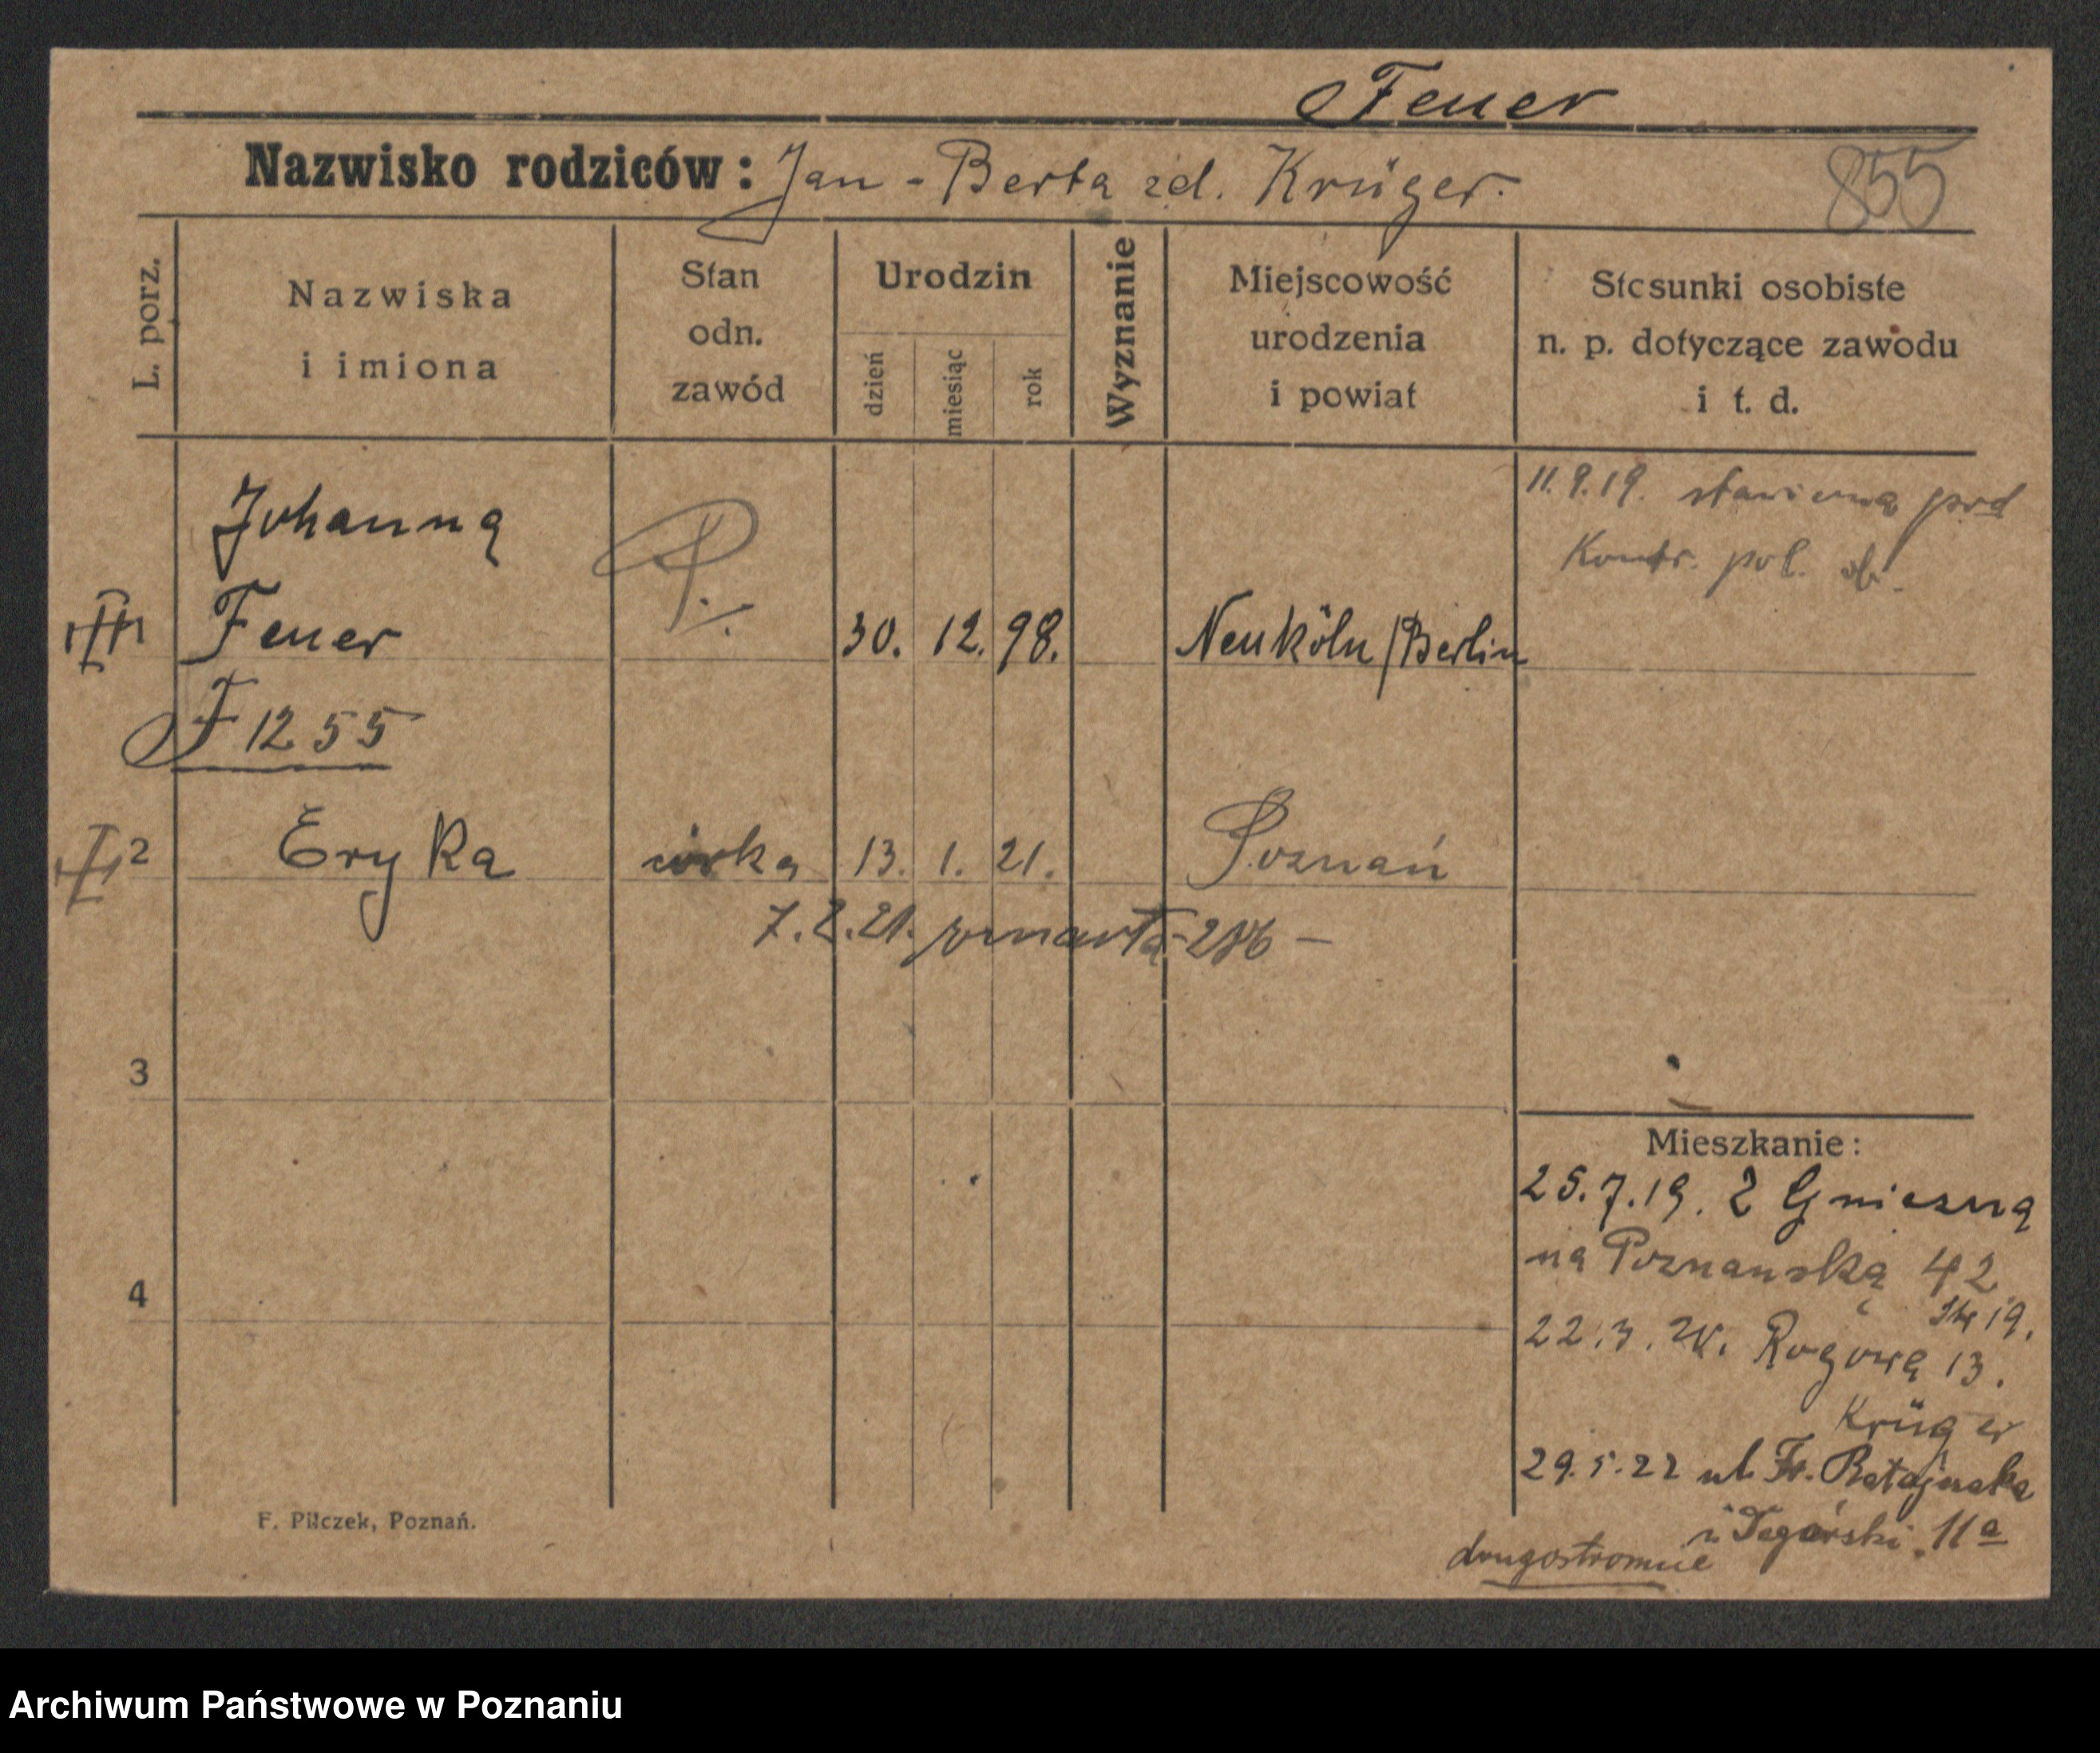 Feuer
Nazwisko rodziców: Jan - Berta zd. Krüger.
855
L. porz.
Nazwiska
i imiona
Stan
odn.
zawód
Urodzin
dzień
miesiąc
rok
Wyznanie
Miejscowość
urodzenia
i powiat
Stosunki osobiste
n. p. dotyczące zawodu
i t. d.
11.9.19. stawiona pod
Kontr. pol. ob.
Johanna
P.
1 Feuer 30. 12. 98. Neuköln/Berlin
F 1255
2 Eryka córka 13. 1. 21. Poznań
7.2.21. zmarła
3
4
Mieszkanie:
25.7.19. z Gniezna
na Poznanską 42
19.
22.3. Rogowa 13.
Krüger
29.5.22 ul. Fr. Ratajczaka
11a
drugostronnie
F. Pilczek, Poznań.
Archiwum Państwowe w Poznaniu